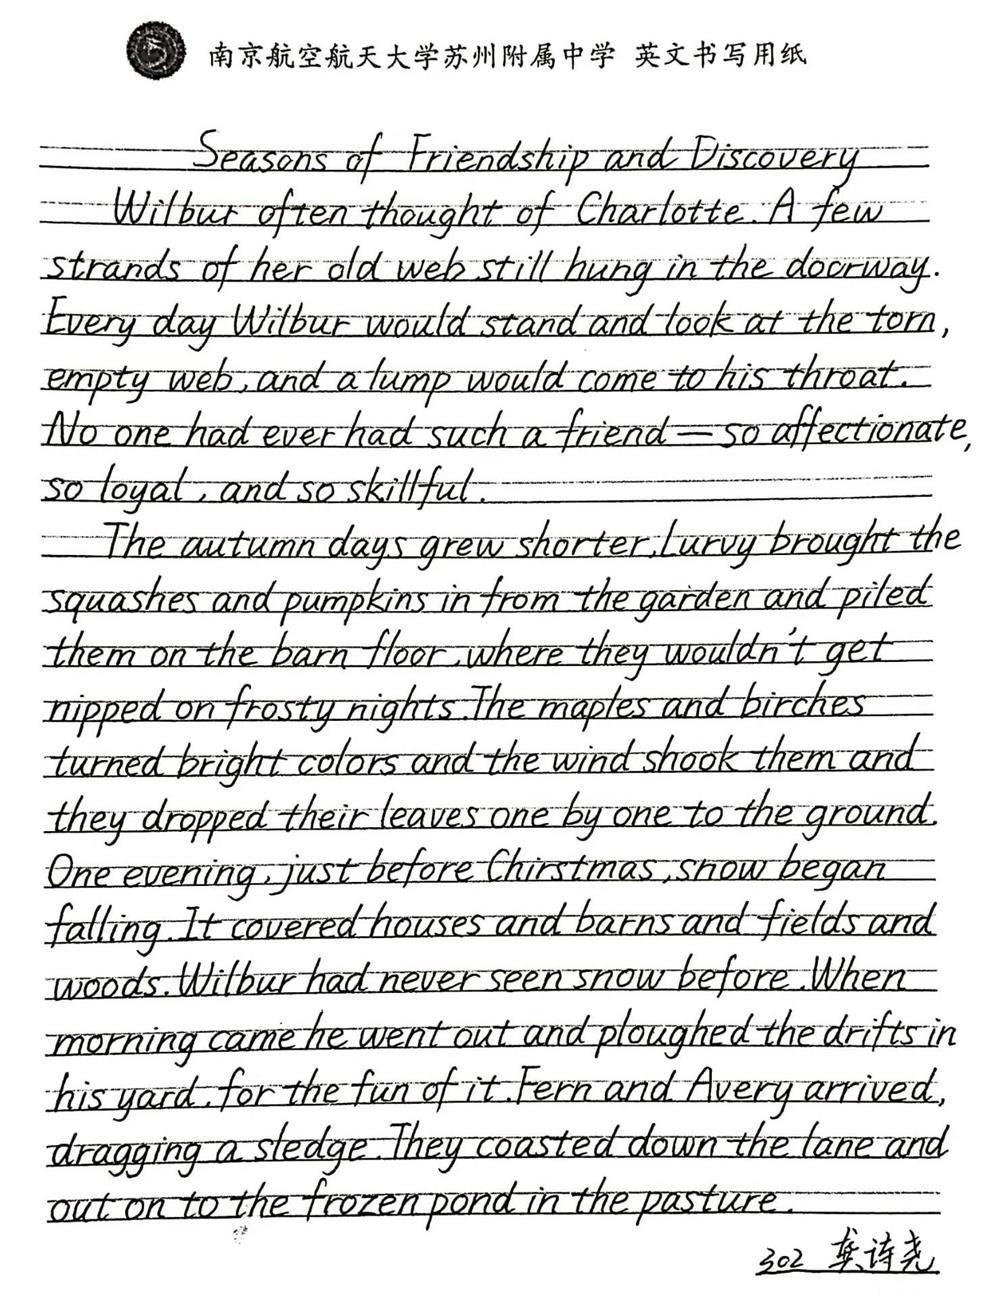 南京航空航天大学苏州附属中学 英文书写用纸
Seasons of Friendship and Discovery
Wilbur often thought of Charlotte. A few
strands of her old web still hung in the doorway.
Every day Wilbur would stand and look at the torn,
empty web, and a lump would come to his throat.
No one had ever had such a friend — so affectionate,
so loyal, and so skillful.
The autumn days grew shorter, Lurvy brought the
squashes and pumpkins in from the garden and piled
them on the barn floor, where they wouldn't get
nipped on frosty nights. The maples and birches
turned bright colors and the wind shook them and
they dropped their leaves one by one to the ground.
One evening, just before Chirstmas, snow began
falling. It covered houses and barns and fields and
woods. Wilbur had never seen snow before. When
morning came he went out and ploughed the drifts in
his yard, for the fun of it. Fern and Avery arrived,
dragging a sledge. They coasted down the lane and
out on to the frozen pond in the pasture.
302 龚诗尧